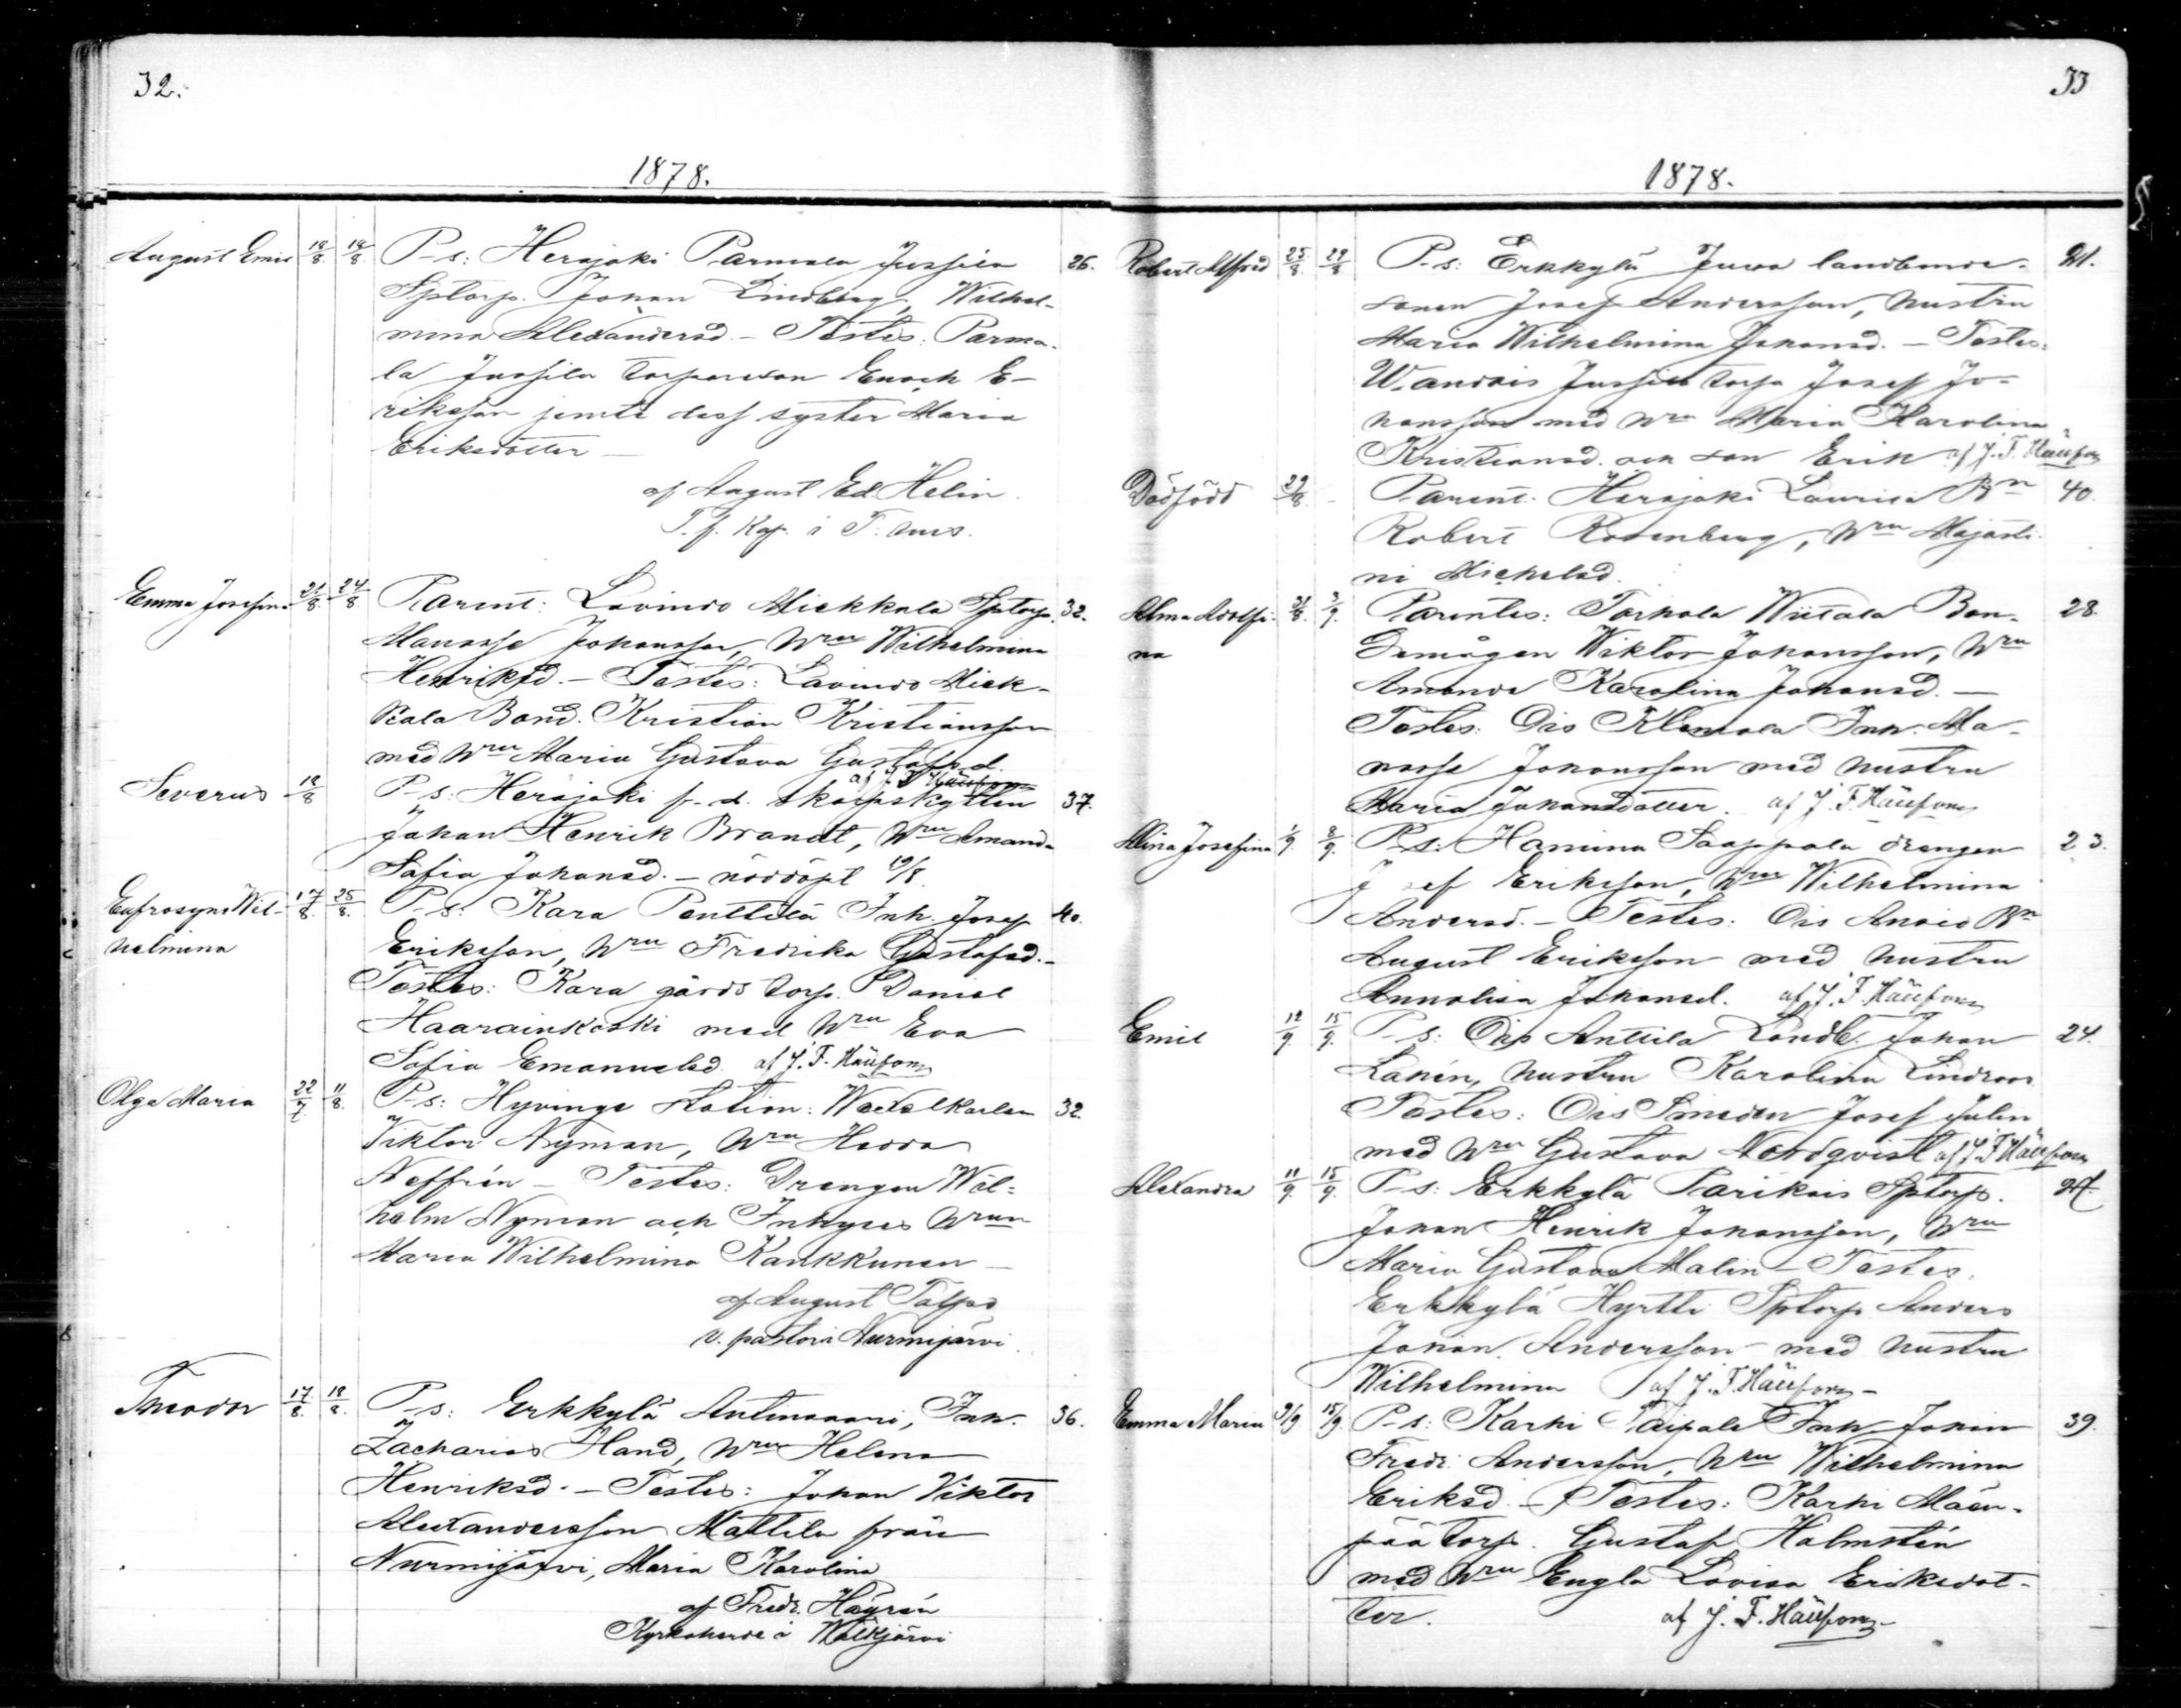 32.
1878.
August Emil 18/8. 18/8. P-s: Herajoki Parmala Jussila 26.
Sptorp. Johan Lindberg, Wilhel-
mina Alexandersd. - Testes: Parma-
la Jussila torpareson Enoch E-
riksson jemte dess syster Maria
Eriksdotter -
af August Ed. Helin.
T. f. Kap. i T:hus.
Emma Josefina 21/8. 24/8 Parent: Lavinto Mickkala Sptorp. 32.
Manasse Johansson, Hru Wilhelmina
Henriksd. - Testes: Lavinto Mick-
kala Bond. Kristian Kristiansson
med Hru Maria Gustava Gustafsd.
af J. F. Häyrson
Severus 18/8 P-s: Herajoki f. d. skarpskytten 37.
Johan Henrik Brandt, Hru Amanda
Sofia Johansd. - nöddöpt 19/8.
Eufrosyne Wil- 17/8. 25/8. P-s: Kara Penttilä Inh. Josef 40.
helmina Eriksson, Hru Fredrika Gustafsd. -
Testes: Kara gårds torp. Daniel
Haarainkoski med Hru Eva
Sofia Emanuelsd. af J. F. Häyrson
Olga Maria 22/7 11/8. P-s: Hyvinge station: Wexelkarlen 32
Viktor Nyman, Hru Hedda
Neffrén - Testes: Drengen Wil-
helm Nyman och Inhyses Hrun
Maria Wilhelmina Kankkunen -
af August Talpo
v. pastor i Nurmijärvi.
Theodor 17/8. 18/8. P-s: Erkkylä Antinsaari, Inh. 36.
Zacharias Hand, Hru Helena
Henriksd. - Testes: Johan Viktor
Alexandersson Mattila från
Nurmijärvi, Maria Karolina
af Fredr. Häyrén
Kyrkoherde i Walkjärvi
33
1878.
Robert Alfred 25/8. 29/8 P-s: Erkkylä Juva landbonde- 21.
sonen Josef Andersson, hustru
Maria Wilhelmina Johansd. - Testes:
Wantais Jussila torp. Josef Jo-
hansson med Hru Maria Karolina
Kristiansd. och son Erik af J. F. Häyrson
Dödfödd 29/8. - Parent. Herajoki Laurila Bn 40.
Robert Rosenberg, Hru Majasti-
ni Michelsd.
Alma Adolfi- 31/8. 3/9. Parentes: Torhola Wiitala Bon- 28.
na demågen Wiktor Johansson, Hru
Amanda Karolina Johansd. -
Testes: Ois Klemola Inh. Ma-
nasse Johansson med hustru
Maria Johansdotter. af J. F. Häyrson
Alina Josefina 1/9. 8/9. P-s: Hamina Saappala drengen 23.
J ef Eriksson, Hru Wilhelmina
Andersd. - Testes: Ois Bn
August Eriksson med hustru
Annalisa Johansd. af J. F. Häyrson
Emil 12/9. 15/9. P-s: Ois Anttila Landb. Johan 24.
Lanén, hustru Karolina Lindroos
Testes: Ois Smeden Josef Julin
med Hru Gustava Nordqvist af J. F. Häyrson
Alexandra 11/9. 15/9. P-s: Erkkylä Parikais Sptorp.
Johan Henrik Johansson, Hru
Maria Gustava Malin - Testes.
Erkkylä Hyrtti Sptorp. Anders
Johan Andersson - med hustru
Wilhelmina af J. F. Häyrson -
Emma Maria 9/9 15/9. P-s: Karhi Taipale Inh. Johan 39.
Fredr. Andersson, Hru Wilhelmina
Eriksd. - Testes: Karhi Mäen-
pää torp. Gustaf Holmstén
med Hru Engla Lovisa Eriksdot-
ter. af J. F. Häyrson